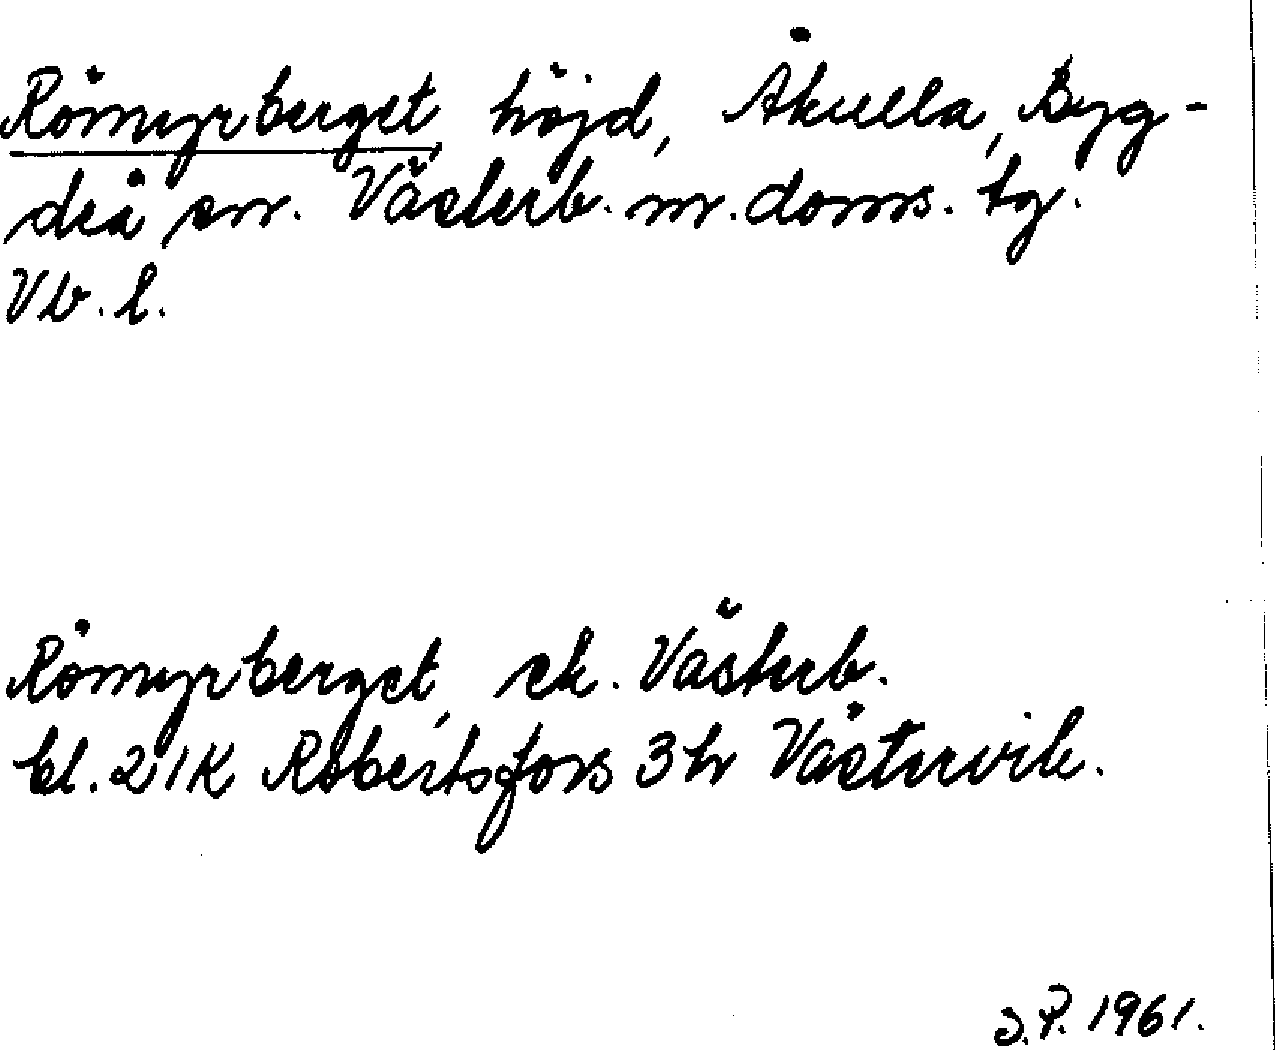 Römyrberget, höjd, Åkulla, Byg-
deå sn. Västerb. m. doms. tg.
Vb. l.
Römyrberget, ek. Västerb.
bl. 21K Robertsfors 3h Västervik.
J.P. 1961.